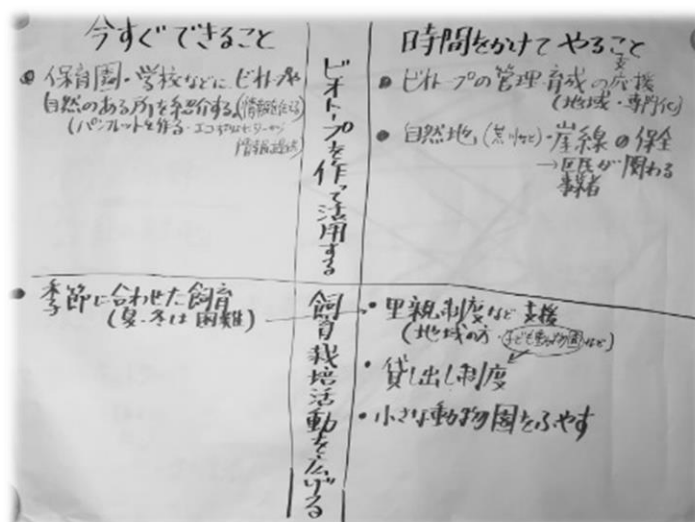 今すぐできること
● 保育園・学校などにビオトープや
自然のある所を紹介する(情報を伝える)
(パンフレットを作る・エコポリスセンターから
情報提供)
ビオトープを作って活用する
時間をかけてやること
● ビオトープの管理・育成の支援
(地域・専門化)
● 自然地(荒川など)・崖線の保全
→区民が関わる
事業者
● 季節に合わせた飼育
(夏・冬は困難)
飼育栽培活動を広げる
● 里親制度など支援
(地域の方・子ども動物園など)
● 貸し出し制度
● 小さな動物園をふやす